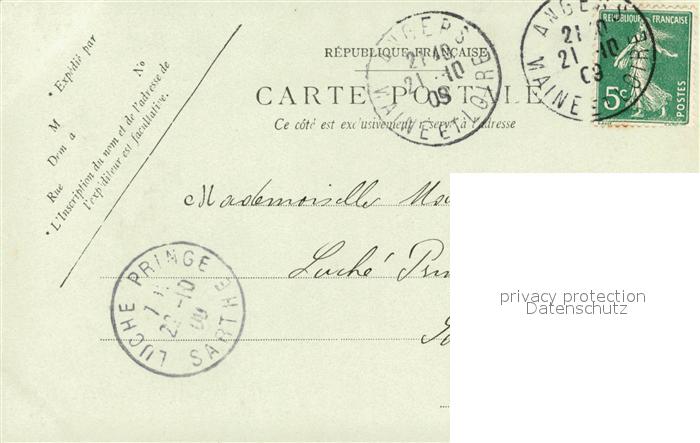 RÉPUBLIQUE FRANÇAISE
CARTE POSTALE
Ce côté est exclusivement réservé à l'adresse
* Expédié par
M
Dem à
No
Rue
* L'Inscription du nom et de l'adresse de
l'expéditeur est facultative.
ANGERS
21 10
21 -10
09
MAINE ET LOIRE
ANGERS
21 10
21 -10
09
MAINE ET LOIRE
REPUBLIQUE FRANÇAISE
5c
POSTES
Mademoiselle
Luché
LUCHE PRINGE
22 -10
09
SARTHE
privacy protection
Datenschutz